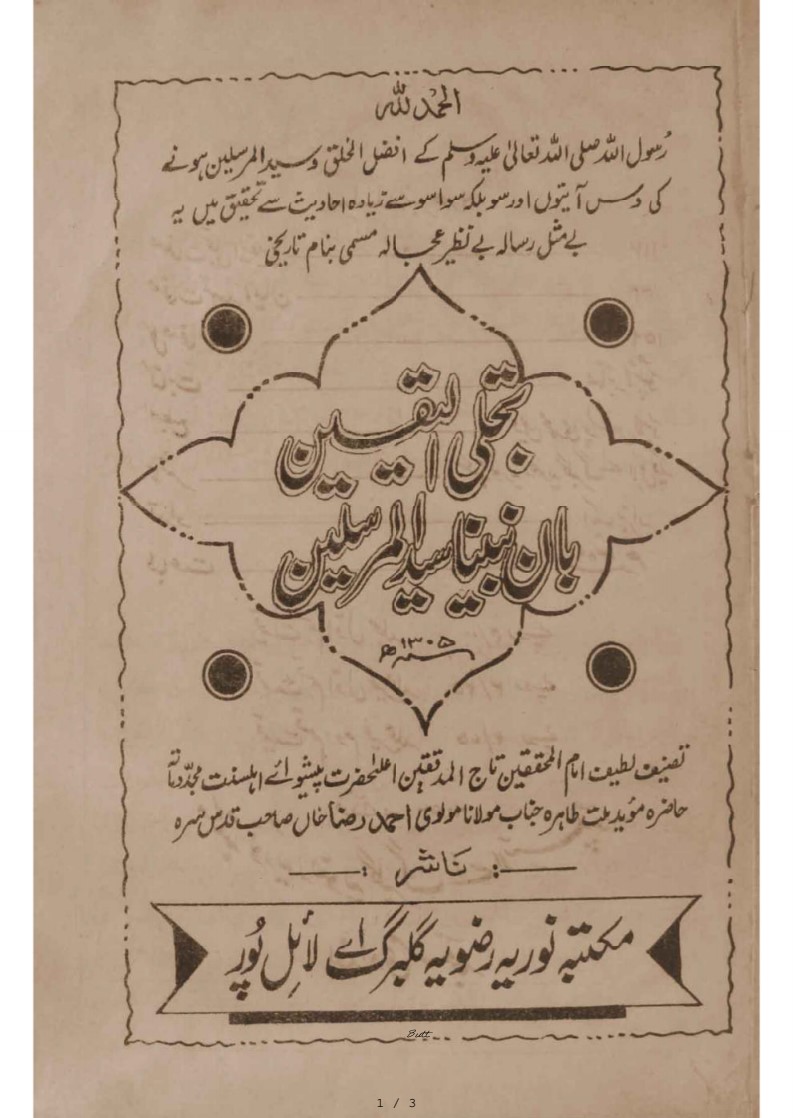 الحمد للہ
رسول اللہ صلی اللہ تعالیٰ علیہ وسلم کے افضل الخلق و سید المرسلین ہونے
کی دس آیتوں اور سو بلکہ سوا سو سے زیادہ احادیث سے تحقیق میں یہ
بے مثل رسالہ بے نظیر عجالہ مسمی بنام تاریخی
تجلی الیقین
بان نبینا سید المرسلین
۱۳۰۵ھ
تصنیف لطیف امام المحققین تاج المدققین اعلیٰحضرت پیشوائے اہلسنت مجدد مأتہ
حاضرہ مؤید ملت طاہرہ جناب مولانا مولوی احمد رضا خاں صاحب قدس سرہ
ناشر
مکتبہ نوریہ رضویہ گلبرگ اے لائل پور
Butt
1 / 3